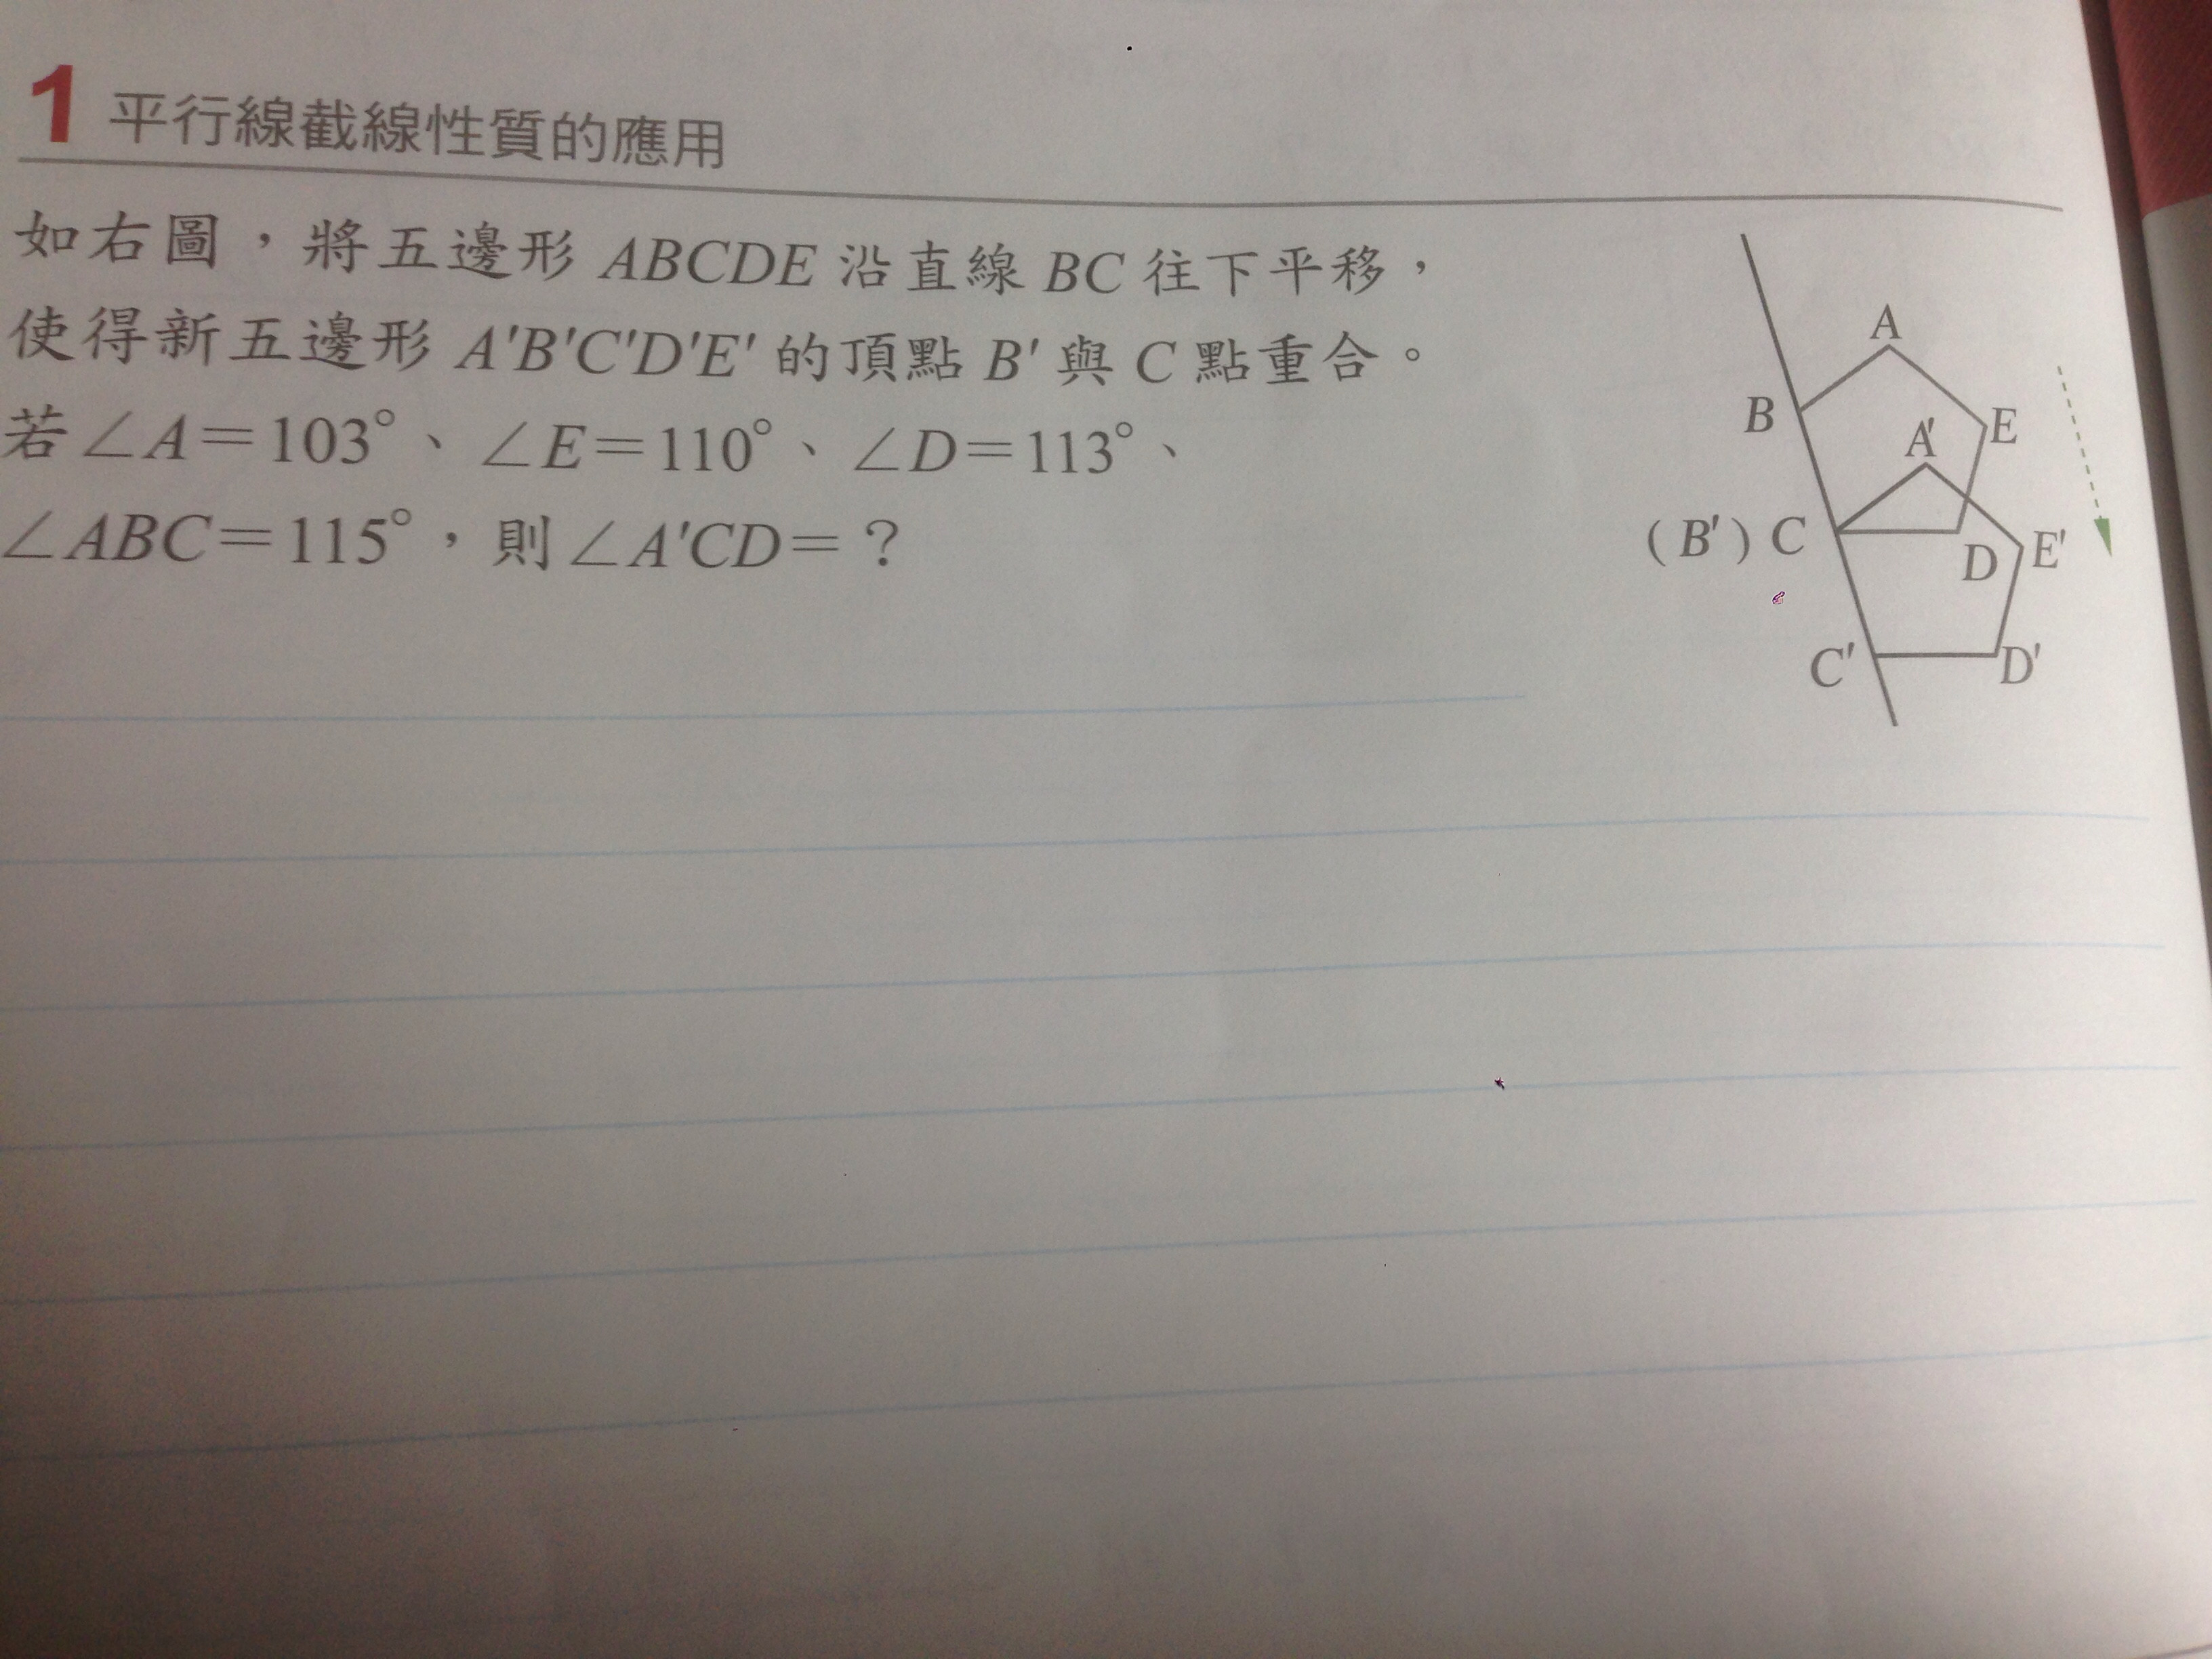 1 平行線截線性質的應用
如右圖，將五邊形 ABCDE 沿直線 BC 往下平移，
使得新五邊形 A′B′C′D′E′ 的頂點 B′ 與 C 點重合。
若∠A＝103°、∠E＝110°、∠D＝113°、
∠ABC＝115°，則∠A′CD＝？
A
B
E
A′
(B′) C
D
E′
C′
D′